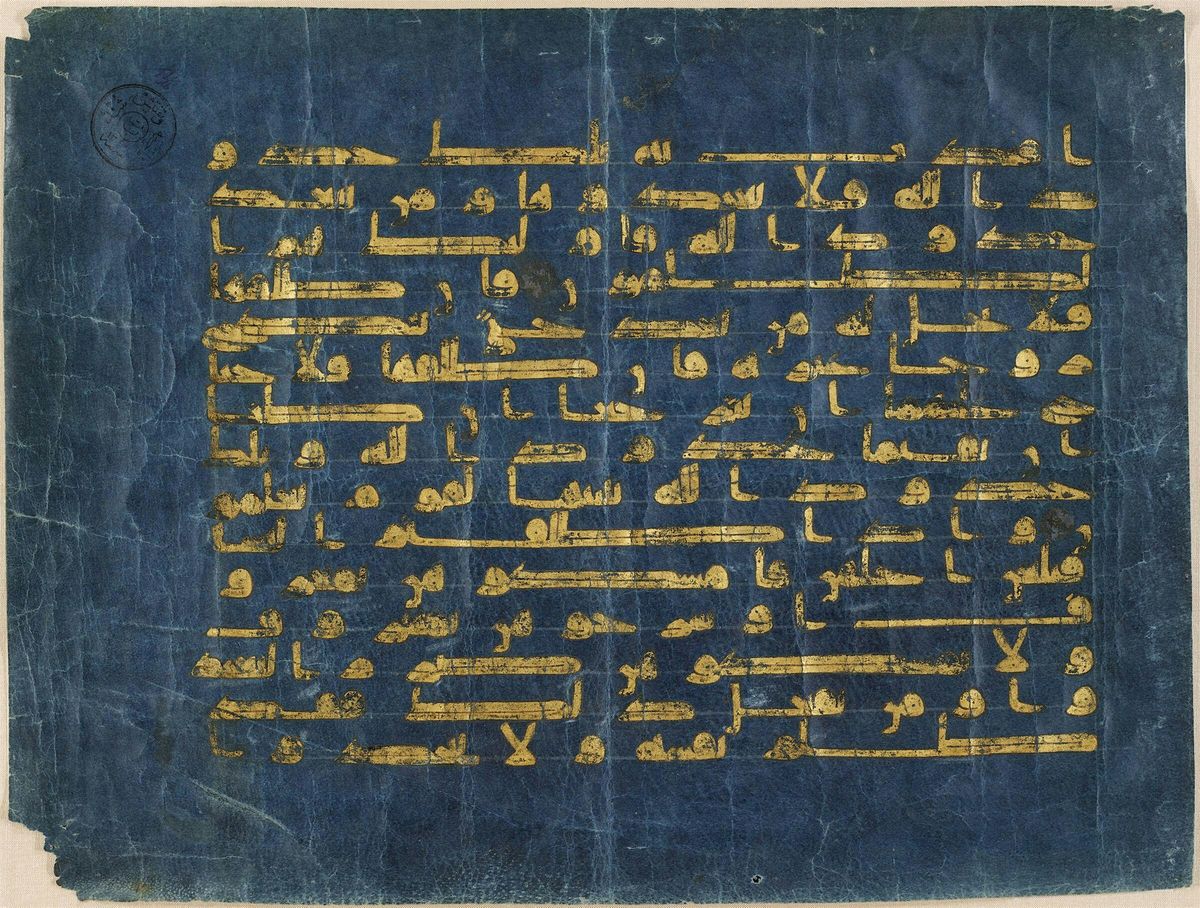 افتدت به تلك حدو
د الله فلا تعتدوها ومن يتعد
حدود الله فاولئك هم ا
لظلمون فان طلقها
فلا تحل له من بعد حتى تنكح
زوجا غيره فان طلقها فلا جنا
ح عليهما ان يتراجعا ان ظنا
ان يقيما حدود الله وتلك
حدود الله يبينها لقوم يعلمو
ن واذا طلقتم النسا
فبلغن اجلهن فامسكوهن بمعرو
ف او سرحوهن بمعروف
ولا تمسكوهن ضرارا لتعتد
وا ومن يفعل ذلك فقد
ظلم نفسه ولا تتخذوا